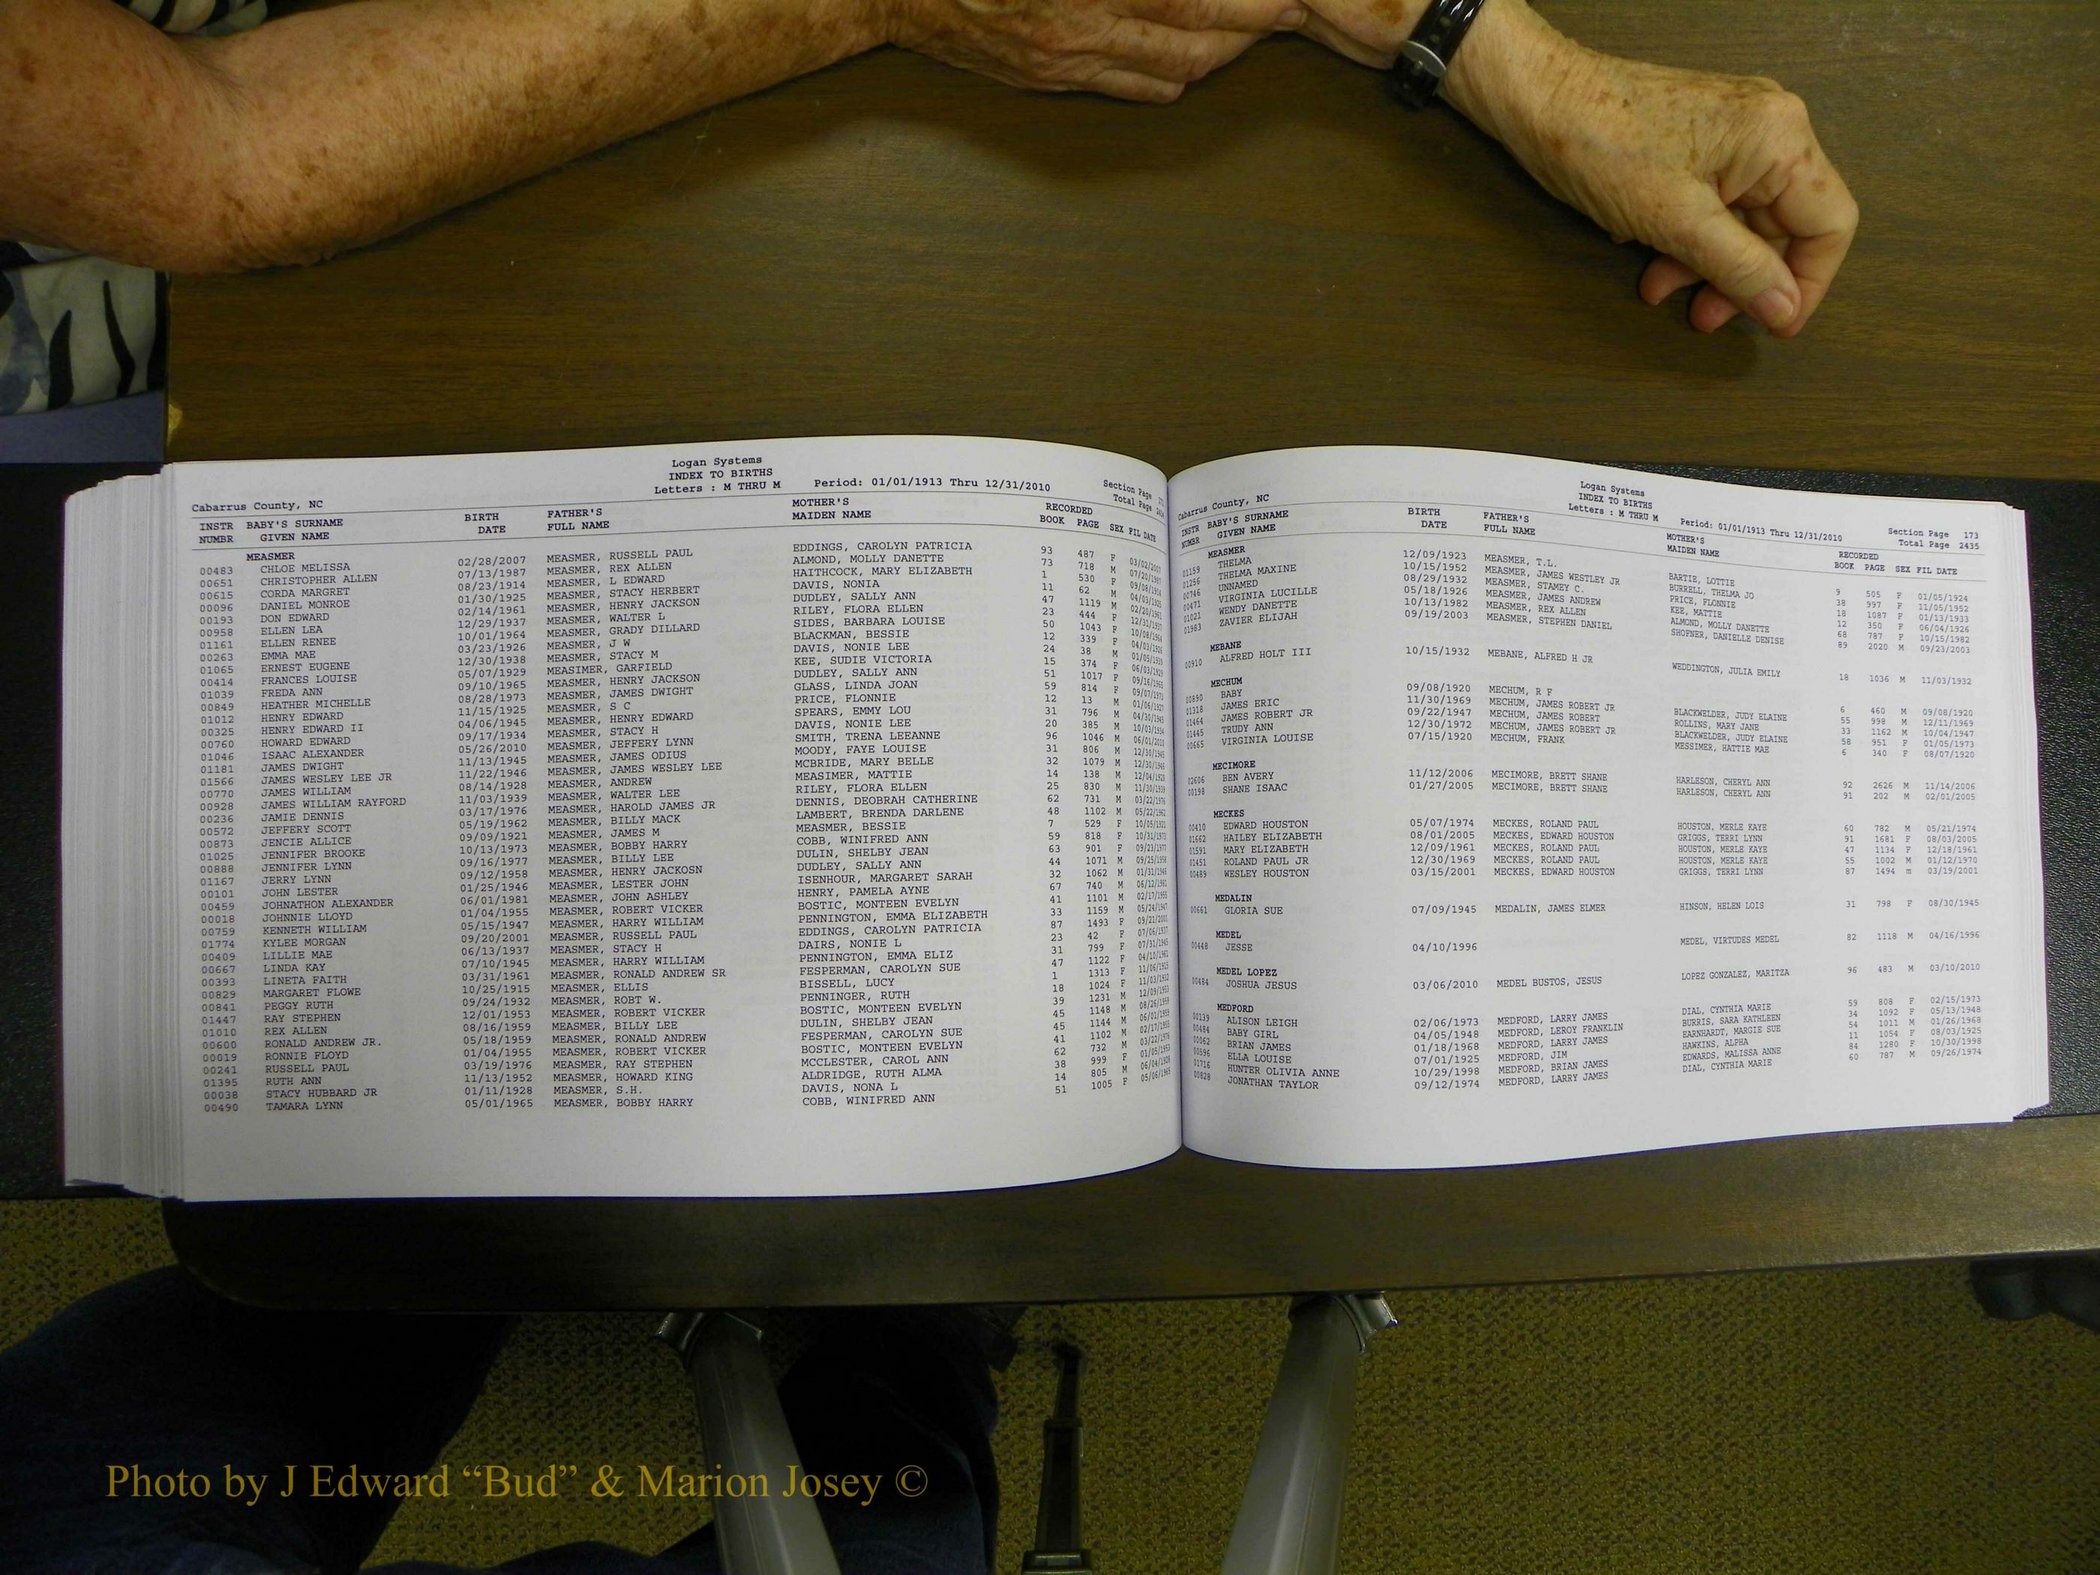 Logan Systems
INDEX TO BIRTHS
Letters : M THRU M Period: 01/01/1913 Thru 12/31/2010
Cabarrus County, NC Section Page
Total Page
INSTR BABY'S SURNAME BIRTH FATHER'S MOTHER'S RECORDED
NUMBR GIVEN NAME DATE FULL NAME MAIDEN NAME BOOK PAGE SEX FIL DATE
MEASMER
00483 CHLOE MELISSA 02/28/2007 MEASMER, RUSSELL PAUL EDDINGS, CAROLYN PATRICIA 93 487 F 03/02/2007
00651 CHRISTOPHER ALLEN 07/13/1987 MEASMER, REX ALLEN ALMOND, MOLLY DANETTE 73 718 M 07/20/1987
00615 CORDA MARGRET 08/23/1914 MEASMER, L EDWARD HAITHCOCK, MARY ELIZABETH 1 530 F 09/08/1914
00096 DANIEL MONROE 01/30/1925 MEASMER, STACY HERBERT DAVIS, NONIA 11 62 M 04/03/1925
00193 DON EDWARD 02/14/1961 MEASMER, HENRY JACKSON DUDLEY, SALLY ANN 47 1119 M 02/20/1961
00958 ELLEN LEA 12/29/1937 MEASMER, WALTER L RILEY, FLORA ELLEN 23 444 F 12/31/1937
01161 ELLEN RENEE 10/01/1964 MEASMER, GRADY DILLARD SIDES, BARBARA LOUISE 50 1043 F 10/08/1964
00263 EMMA MAE 03/23/1926 MEASMER, J W BLACKMAN, BESSIE 12 339 F 04/03/1926
01065 ERNEST EUGENE 12/30/1938 MEASMER, STACY M DAVIS, NONIE LEE 24 38 M 01/05/1939
00414 FRANCES LOUISE 05/07/1929 MEASIMER, GARFIELD KEE, SUDIE VICTORIA 15 374 F 06/03/1929
01039 FREDA ANN 09/10/1965 MEASMER, HENRY JACKSON DUDLEY, SALLY ANN 51 1017 F 09/16/1965
00849 HEATHER MICHELLE 08/28/1973 MEASMER, JAMES DWIGHT GLASS, LINDA JOAN 59 814 F 09/07/1973
01012 HENRY EDWARD 11/15/1925 MEASMER, S C PRICE, FLONNIE 12 13 M
00325 HENRY EDWARD II 04/06/1945 MEASMER, HENRY EDWARD SPEARS, EMMY LOU 31 796 M 04/30/1945
00760 HOWARD EDWARD 09/17/1934 MEASMER, STACY H DAVIS, NONIE LEE 20 385 M 10/03/1934
01046 ISAAC ALEXANDER 05/26/2010 MEASMER, JEFFERY LYNN SMITH, TRENA LEEANNE 96 1046 M 06/01/2010
01181 JAMES DWIGHT 11/13/1945 MEASMER, JAMES ODIUS MOODY, FAYE LOUISE 31 806 M
01566 JAMES WESLEY LEE JR 11/22/1946 MEASMER, JAMES WESLEY LEE MCBRIDE, MARY BELLE 32 1079 M 12/30/1946
00770 JAMES WILLIAM 08/14/1928 MEASMER, ANDREW MEASIMER, MATTIE 14 138 M
00928 JAMES WILLIAM RAYFORD 11/03/1939 MEASMER, WALTER LEE RILEY, FLORA ELLEN 25 830 M 11/30/1939
00236 JAMIE DENNIS 03/17/1976 MEASMER, HAROLD JAMES JR DENNIS, DEOBRAH CATHERINE 62 731 M 03/22/1976
00572 JEFFERY SCOTT 05/19/1962 MEASMER, BILLY MACK LAMBERT, BRENDA DARLENE 48 1102 M 05/22/1962
00873 JENCIE ALLICE 09/09/1921 MEASMER, JAMES M MEASMER, BESSIE 7 529 F 10/05/1921
01025 JENNIFER BROOKE 10/13/1973 MEASMER, BOBBY HARRY COBB, WINIFRED ANN 59 818 F 10/31/1973
00888 JENNIFER LYNN 09/16/1977 MEASMER, BILLY LEE DULIN, SHELBY JEAN 63 901 F 09/23/1977
01167 JERRY LYNN 09/12/1958 MEASMER, HENRY JACKOSN DUDLEY, SALLY ANN 44 1071 M 09/25/1958
00101 JOHN LESTER 01/25/1946 MEASMER, LESTER JOHN ISENHOUR, MARGARET SARAH 32 1062 M 01/31/1946
00459 JOHNATHON ALEXANDER 06/01/1981 MEASMER, JOHN ASHLEY HENRY, PAMELA AYNE 67 740 M 06/12/1981
00018 JOHNNIE LLOYD 01/04/1955 MEASMER, ROBERT VICKER BOSTIC, MONTEEN EVELYN 41 1101 M 02/17/1955
00759 KENNETH WILLIAM 05/15/1947 MEASMER, HARRY WILLIAM PENNINGTON, EMMA ELIZABETH 33 1159 M 05/24/1947
01774 KYLEE MORGAN 09/20/2001 MEASMER, RUSSELL PAUL EDDINGS, CAROLYN PATRICIA 87 1493 F 09/21/2001
00409 LILLIE MAE 06/13/1937 MEASMER, STACY H DAIRS, NONIE L 23 42 F 07/06/1937
00667 LINDA KAY 07/10/1945 MEASMER, HARRY WILLIAM PENNINGTON, EMMA ELIZ 31 799 F 07/31/1945
00393 LINETA FAITH 03/31/1961 MEASMER, RONALD ANDREW SR FESPERMAN, CAROLYN SUE 47 1122 F 04/10/1961
00829 MARGARET FLOWE 10/25/1915 MEASMER, ELLIS BISSELL, LUCY 1 1313 F 11/06/1915
00841 PEGGY RUTH 09/24/1932 MEASMER, ROBT W. PENNINGER, RUTH 18 1024 F 11/03/1932
01447 RAY STEPHEN 12/01/1953 MEASMER, ROBERT VICKER BOSTIC, MONTEEN EVELYN 39 1231 M 12/09/1953
01010 REX ALLEN 08/16/1959 MEASMER, BILLY LEE DULIN, SHELBY JEAN 45 1148 M 08/26/1959
00600 RONALD ANDREW JR. 05/18/1959 MEASMER, RONALD ANDREW FESPERMAN, CAROLYN SUE 45 1144 M 06/01/1959
00019 RONNIE FLOYD 01/04/1955 MEASMER, ROBERT VICKER BOSTIC, MONTEEN EVELYN 41 1102 M 02/17/1955
00241 RUSSELL PAUL 03/19/1976 MEASMER, RAY STEPHEN MCCLESTER, CAROL ANN 62 732 M 03/22/1976
01395 RUTH ANN 11/13/1952 MEASMER, HOWARD KING ALDRIDGE, RUTH ALMA 38 999 F 01/05/1953
00038 STACY HUBBARD JR 01/11/1928 MEASMER, S.H. DAVIS, NONA L 14 805 M 06/04/1928
00490 TAMARA LYNN 05/01/1965 MEASMER, BOBBY HARRY COBB, WINIFRED ANN 51 1005 F 05/06/1965
Logan Systems
INDEX TO BIRTHS
Letters : M THRU M Period: 01/01/1913 Thru 12/31/2010
Cabarrus County, NC Section Page 173
Total Page 2435
INSTR BABY'S SURNAME BIRTH FATHER'S MOTHER'S RECORDED
NUMBR GIVEN NAME DATE FULL NAME MAIDEN NAME BOOK PAGE SEX FIL DATE
MEASMER
01159 THELMA 12/09/1923 MEASMER, T.L. BARTIE, LOTTIE 9 505 F 01/05/1924
01256 THELMA MAXINE 10/15/1952 MEASMER, JAMES WESTLEY JR BURRELL, THELMA JO 38 997 F 11/05/1952
00746 UNNAMED 08/29/1932 MEASMER, STAMEY C. PRICE, FLONNIE 18 1087 F 01/13/1933
00471 VIRGINIA LUCILLE 05/18/1926 MEASMER, JAMES ANDREW KEE, MATTIE 12 350 F 06/04/1926
01021 WENDY DANETTE 10/13/1982 MEASMER, REX ALLEN ALMOND, MOLLY DANETTE 68 787 F 10/15/1982
01983 ZAVIER ELIJAH 09/19/2003 MEASMER, STEPHEN DANIEL SHOFNER, DANIELLE DENISE 89 2020 M 09/23/2003
MEBANE
00910 ALFRED HOLT III 10/15/1932 MEBANE, ALFRED H JR WEDDINGTON, JULIA EMILY 18 1036 M 11/03/1932
MECHUM
00890 BABY 09/08/1920 MECHUM, R F 6 460 M 09/08/1920
01318 JAMES ERIC 11/30/1969 MECHUM, JAMES ROBERT JR BLACKWELDER, JUDY ELAINE 55 998 M 12/11/1969
01464 JAMES ROBERT JR 09/22/1947 MECHUM, JAMES ROBERT ROLLINS, MARY JANE 33 1162 M 10/04/1947
01445 TRUDY ANN 12/30/1972 MECHUM, JAMES ROBERT JR BLACKWELDER, JUDY ELAINE 58 951 F 01/05/1973
00665 VIRGINIA LOUISE 07/15/1920 MECHUM, FRANK MESSIMER, HATTIE MAE 6 340 F 08/07/1920
MECIMORE
02606 BEN AVERY 11/12/2006 MECIMORE, BRETT SHANE HARLESON, CHERYL ANN 92 2626 M 11/14/2006
00198 SHANE ISAAC 01/27/2005 MECIMORE, BRETT SHANE HARLESON, CHERYL ANN 91 202 M 02/01/2005
MECKES
00410 EDWARD HOUSTON 05/07/1974 MECKES, ROLAND PAUL HOUSTON, MERLE KAYE 60 782 M 05/21/1974
01662 HAILEY ELIZABETH 08/01/2005 MECKES, EDWARD HOUSTON GRIGGS, TERRI LYNN 91 1681 F 08/03/2005
01591 MARY ELIZABETH 12/09/1961 MECKES, ROLAND PAUL HOUSTON, MERLE KAYE 47 1134 F 12/18/1961
01451 ROLAND PAUL JR 12/30/1969 MECKES, ROLAND PAUL HOUSTON, MERLE KAYE 55 1002 M 01/12/1970
00489 WESLEY HOUSTON 03/15/2001 MECKES, EDWARD HOUSTON GRIGGS, TERRI LYNN 87 1494 m 03/19/2001
MEDALIN
00661 GLORIA SUE 07/09/1945 MEDALIN, JAMES ELMER HINSON, HELEN LOIS 31 798 F 08/30/1945
MEDEL
00448 JESSE 04/10/1996 MEDEL, VIRTUDES MEDEL 82 1118 M 04/16/1996
MEDEL LOPEZ
00484 JOSHUA JESUS 03/06/2010 MEDEL BUSTOS, JESUS LOPEZ GONZALEZ, MARITZA 96 483 M 03/10/2010
MEDFORD
00139 ALISON LEIGH 02/06/1973 MEDFORD, LARRY JAMES DIAL, CYNTHIA MARIE 59 808 F 02/15/1973
00484 BABY GIRL 04/05/1948 MEDFORD, LEROY FRANKLIN BURRIS, SARA KATHLEEN 34 1092 F 05/13/1948
00062 BRIAN JAMES 01/18/1968 MEDFORD, LARRY JAMES EARNHARDT, MARGIE SUE 54 1011 M 01/26/1968
00596 ELLA LOUISE 07/01/1925 MEDFORD, JIM HAWKINS, ALPHA 11 1054 F 08/03/1925
01716 HUNTER OLIVIA ANNE 10/29/1998 MEDFORD, BRIAN JAMES EDWARDS, MALISSA ANNE 84 1280 F 10/30/1998
00828 JONATHAN TAYLOR 09/12/1974 MEDFORD, LARRY JAMES DIAL, CYNTHIA MARIE 60 787 M 09/26/1974
Photo by J Edward “Bud” & Marion Josey ©